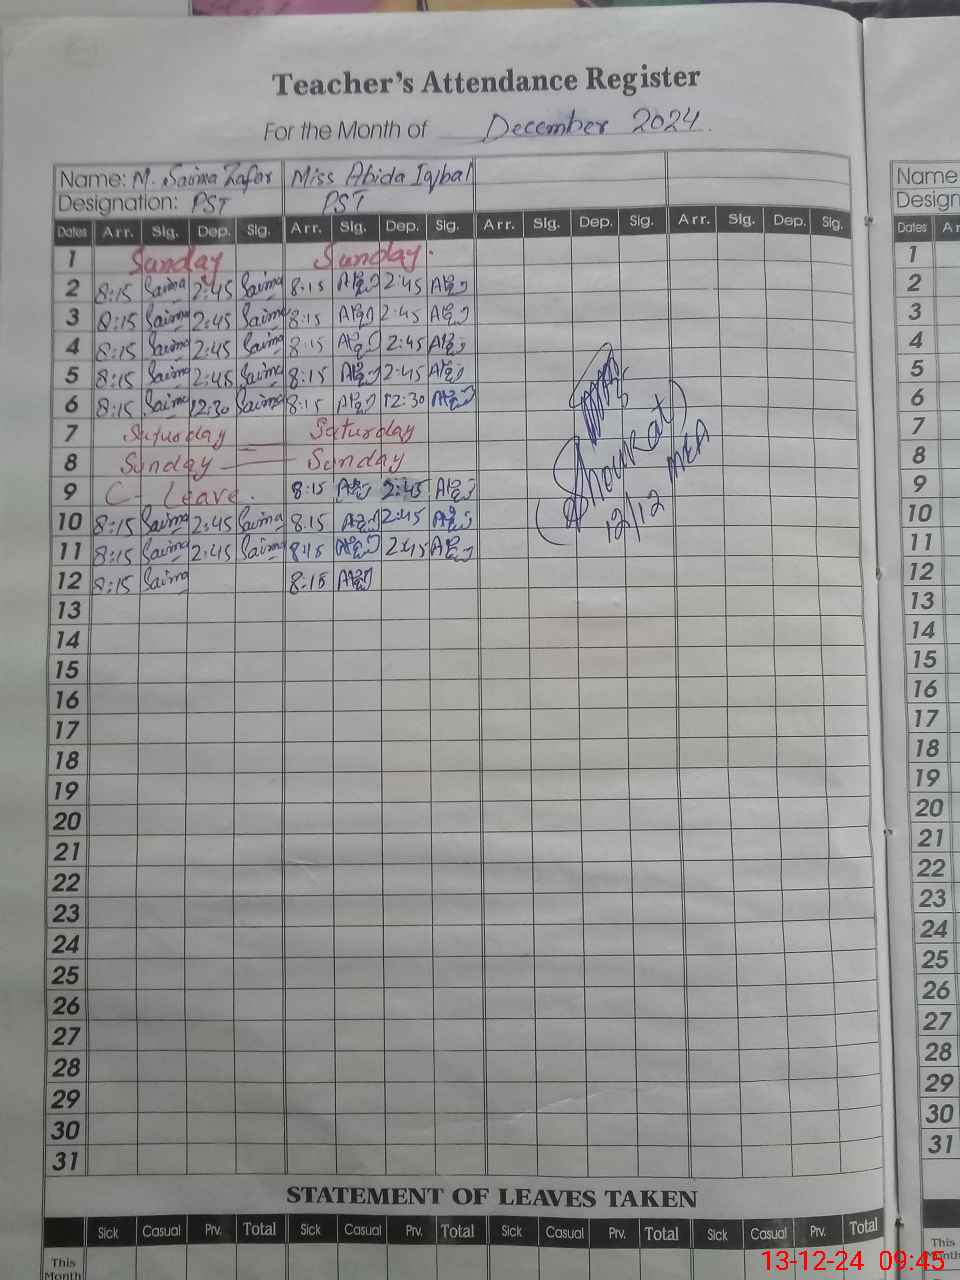 Teacher's Attendance Register
For the Month of December 2024.
Name: M. Saima Zafar Miss Abida Iqbal
Designation: PST PST
Dates Arr. Sig. Dep. Sig. Arr. Sig. Dep. Sig. Arr. Sig. Dep. Sig. Arr. Sig. Dep. Sig.
1 Sunday Sunday.
2 8:15 Saima 2:45 Saima 8:15 2:45
3 8:15 Saima 2:45 Saima 8:15 2:45
4 8:15 Saima 2:45 Saima 8:15 2:45
5 8:15 Saima 2:45 Saima 8:15 2:45
6 8:15 Saima 12:30 Saima 8:15 12:30
7 Saturday Saturday
8 Sunday Sunday
9 C- Leave. 8:15 2:45
10 8:15 Saima 2:45 Saima 8:15 2:45
11 8:15 Saima 2:45 Saima 8:15 2:45
12 8:15 Saima 8:15
(Shoukat)
MEA
12/12
13
14
15
16
17
18
19
20
21
22
23
24
25
26
27
28
29
30
31
STATEMENT OF LEAVES TAKEN
Sick Casual Prv. Total Sick Casual Prv. Total Sick Casual Prv. Total Sick Casual Prv. Total
This
Month
Name
Design
Dates
1
2
3
4
5
6
7
8
9
10
11
12
13
14
15
16
17
18
19
20
21
22
23
24
25
26
27
28
29
30
31
This
Month
13-12-24 09:45